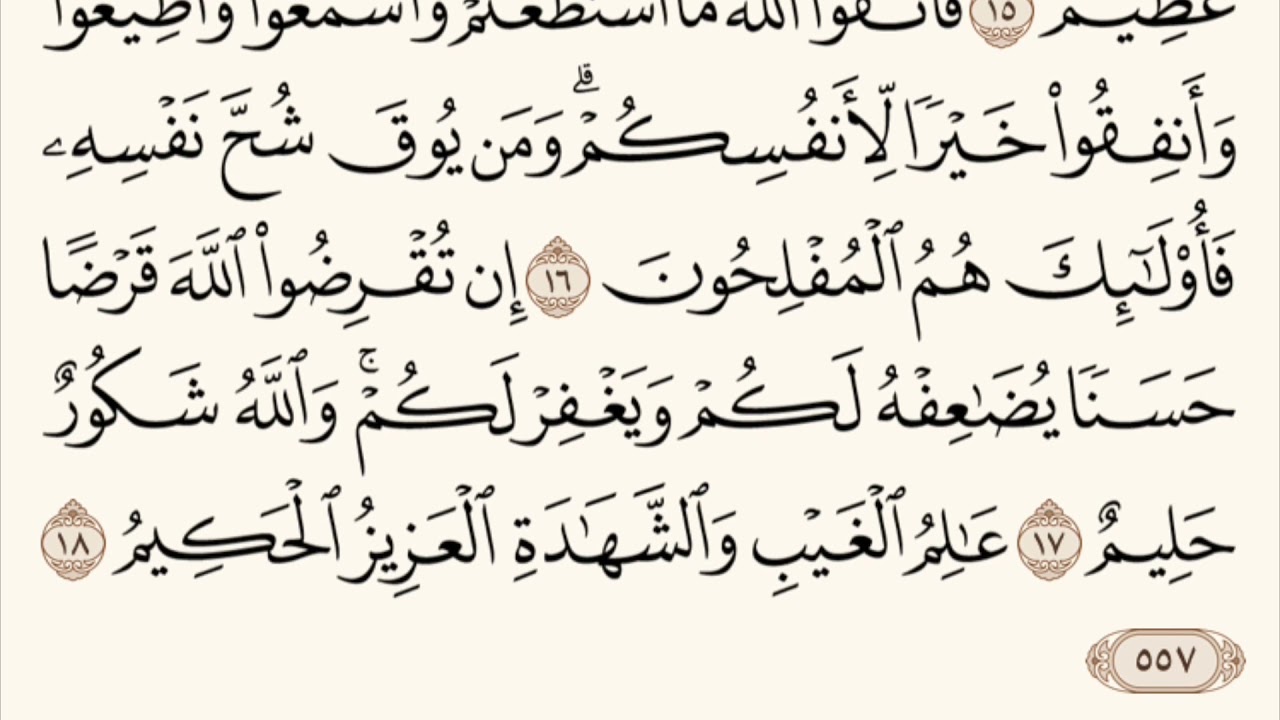 عَظِيمٌ ١٥ فَٱتَّقُوا۟ ٱللَّهَ مَا ٱسْتَطَعْتُمْ وَٱسْمَعُوا۟ وَأَطِيعُوا۟
وَأَنفِقُوا۟ خَيْرًا لِّأَنفُسِكُمْ ۗ وَمَن يُوقَ شُحَّ نَفْسِهِۦ
فَأُو۟لَـٰٓئِكَ هُمُ ٱلْمُفْلِحُونَ ١٦ إِن تُقْرِضُوا۟ ٱللَّهَ قَرْضًا
حَسَنًا يُضَـٰعِفْهُ لَكُمْ وَيَغْفِرْ لَكُمْ ۚ وَٱللَّهُ شَكُورٌ
حَلِيمٌ ١٧ عَـٰلِمُ ٱلْغَيْبِ وَٱلشَّهَـٰدَةِ ٱلْعَزِيزُ ٱلْحَكِيمُ ١٨
٥٥٧